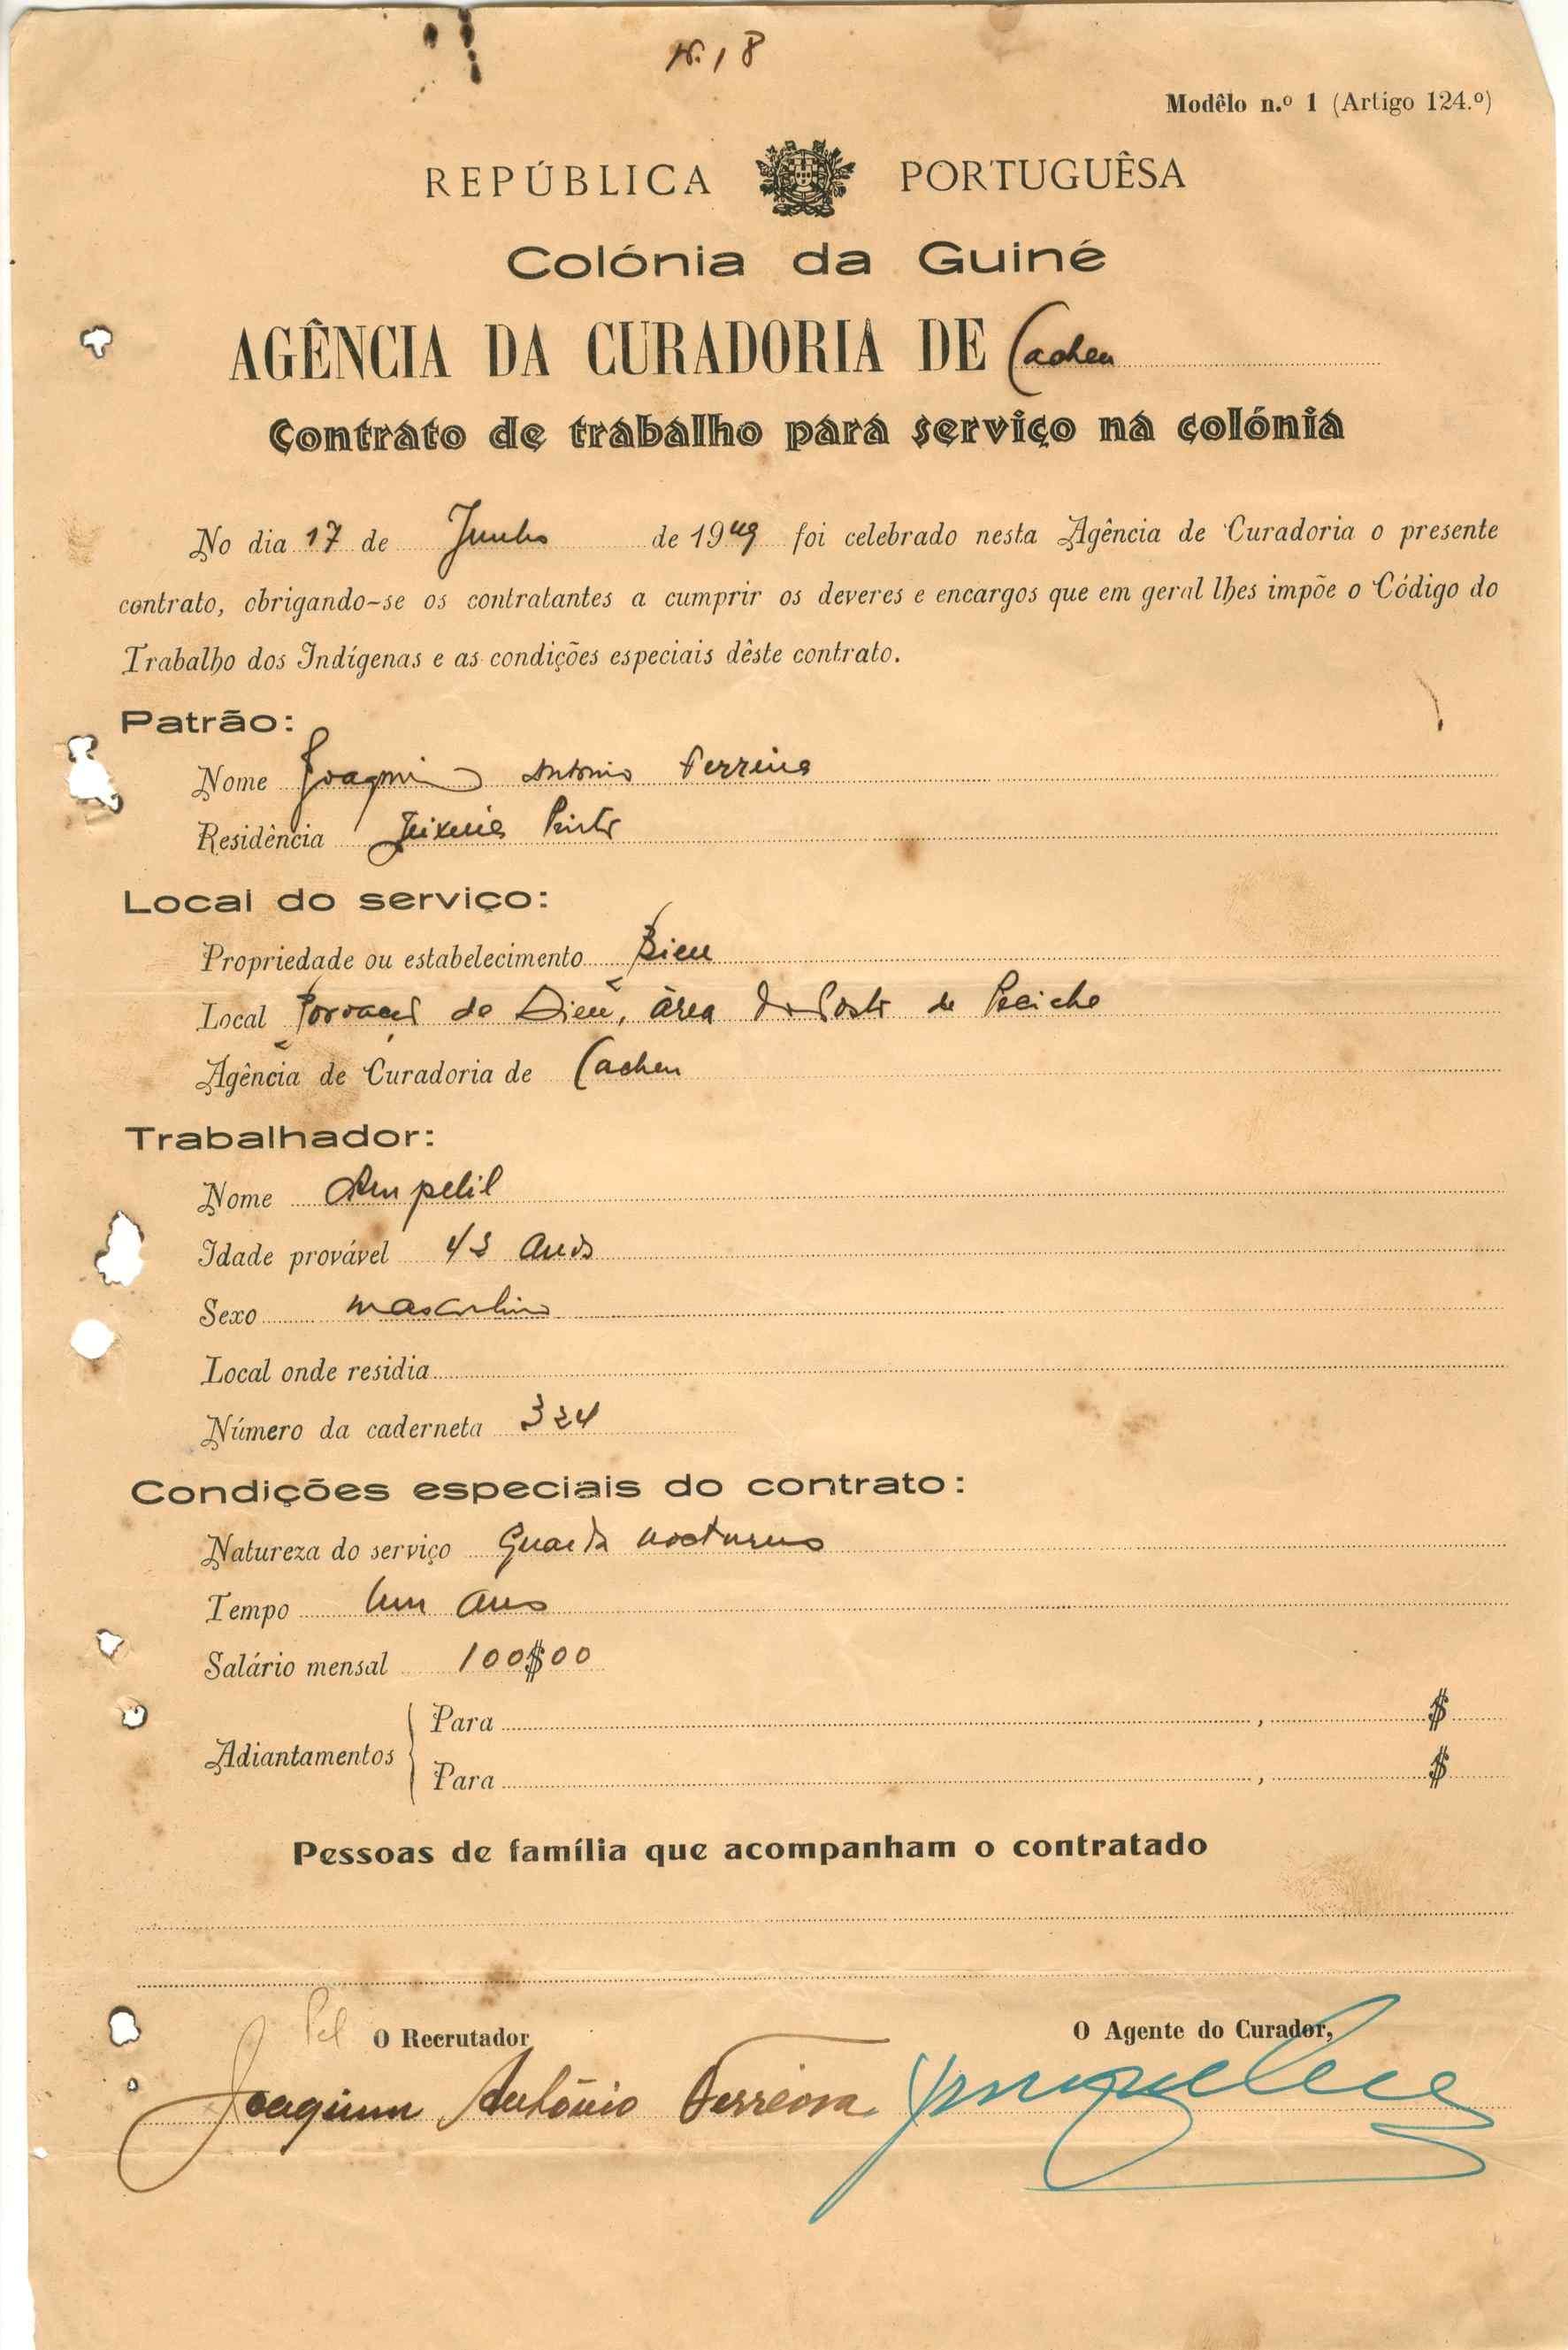 N. 18
Modêlo n.º 1 (Artigo 124.º)
REPÚBLICA PORTUGUÊSA
Colónia da Guiné
AGÊNCIA DA CURADORIA DE Cacheu
Contrato de trabalho para serviço na colónia
No dia 17 de Junho de 1949 foi celebrado nesta Agência de Curadoria o presente
contrato, obrigando-se os contratantes a cumprir os deveres e encargos que em geral lhes impõe o Código do
Trabalho dos Indígenas e as condições especiais dêste contrato.
Patrão:
Nome Joaquim António Ferreira
Residência Teixeira Pinto
Local do serviço:
Propriedade ou estabelecimento Bieu
Local de área do Posto de Pecixe
Agência de Curadoria de Cacheu
Trabalhador:
Nome Ampelil
Idade provável 43 anos
Sexo masculino
Local onde residia
Número da caderneta 324
Condições especiais do contrato:
Natureza do serviço Guarda nocturno
Tempo Um ano
Salário mensal 100$00
Adiantamentos
Para , $
Para , $
Pessoas de família que acompanham o contratado
Pel O Recrutador
O Agente do Curador,
Joaquim António Ferreira